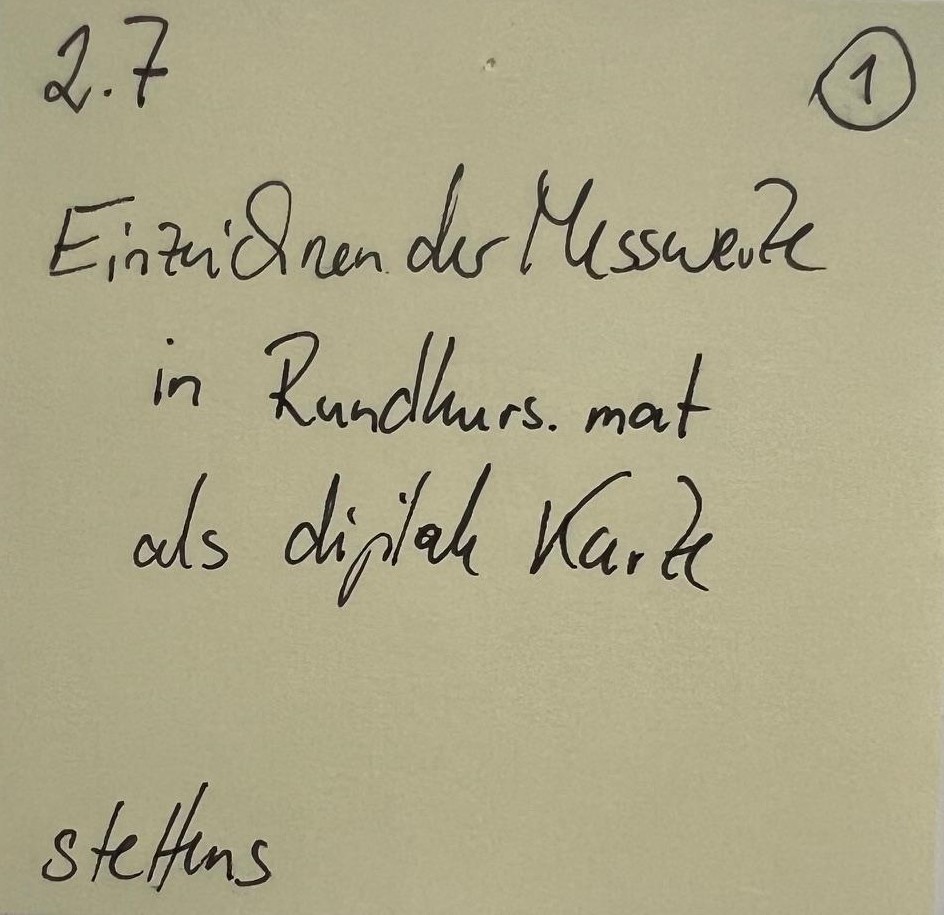 2.7 1
Einzeichnen der Messwerte
in Rundkurs.mat
als digitale Karte
steffens